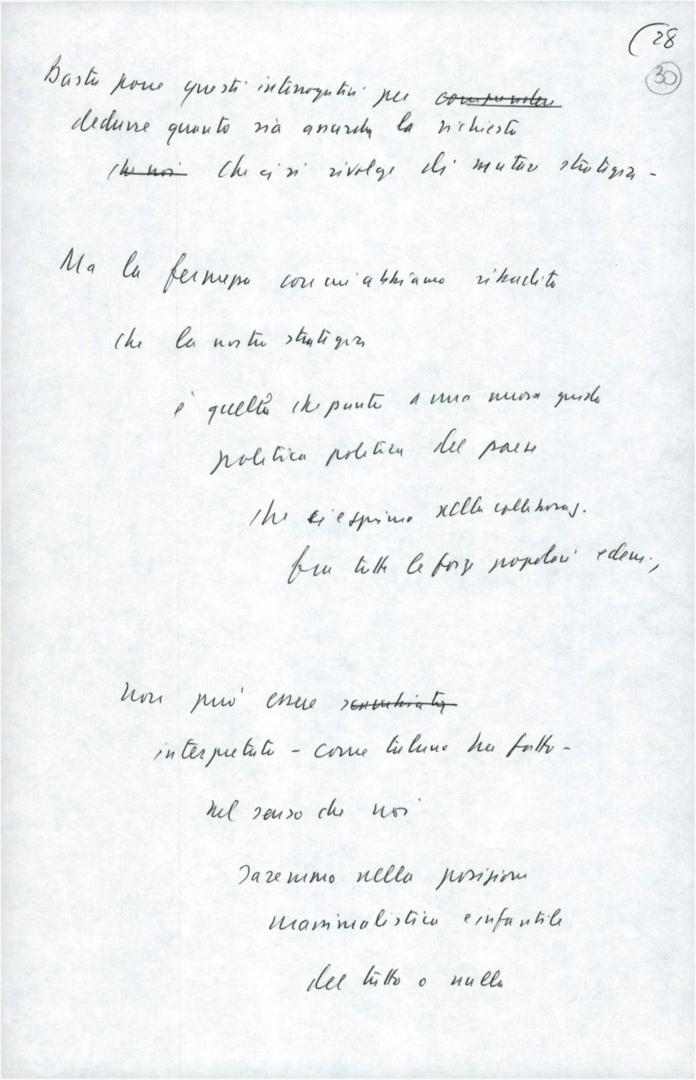 28
30
Basta porre questi interrogativi per comprendere
dedurre quanto sia assurda la richiesta
che noi che ci si rivolge di mutar strategia -
Ma la fermezza con cui abbiamo ribadito
che la nostra strategia
è quella che punta a una nuova guida
politica politica del paese
che si esprima nella collaboraz.
fra tutte le forze popolari e dem.,
non può essere scambiata
interpretata - come taluno ha fatto -
nel senso che noi
saremmo nella posizione
massimalistica e infantile
del tutto o nulla